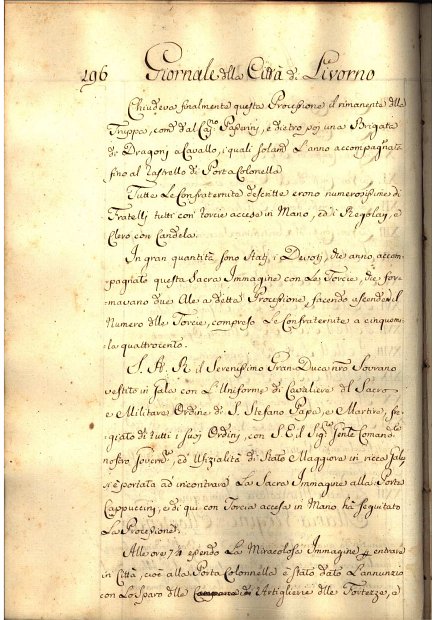 196 Giornale della Città di Livorno
Chiudeva finalmente questa Processione il rimanente della
Truppa, cond.ª dal Cap.no Paperini, e dietro poi una Brigata
di Dragoni a Cavallo, i quali solam.te l'anno accompagnata
fino al Rastrello di Porta Colonella
Tutte le Confraternite descritte erono numerosissime di
Fratelli tutti con Torcie accese in Mano, ed i Regolari, e
Clero con Candela.
In gran quantità sono Stati, i Devoti, che anno, accom-
pagniato questa Sacra Immagine con le Torcie, che for-
mavano due Ale a detta Processione, facendo ascendere il
Numero delle Torcie, compreso le Confraternite a cinquemi-
la quattrocento.
S. A. R. il Serenissimo Gran-Duca nro Sovrano
vestito in Gala con l'Uniforme di Cavaliere del Sacro
e Militare Ordine di S. Stefano Papa, e Martire, fe-
giato di tutti i suoj Ordini, con S. E. il Sig.r Tente Comand.te
nostro Govern.e, ed Ufizialità di Stato Maggiore in ricca Gala,
si è portata ad incontrare la Sacra Immagine alla Porta
Cappuccini, e di qui con Torcia accesa in Mano hà seguitato
la Processione.
Alle ore 7¼ essendo la Miracolosa Immagine p entrare
in Città, cioè alla Porta Colonnella è stato dato l'annunzio
con lo sparo delle Campane di Artiglierie delle Fortezze, a